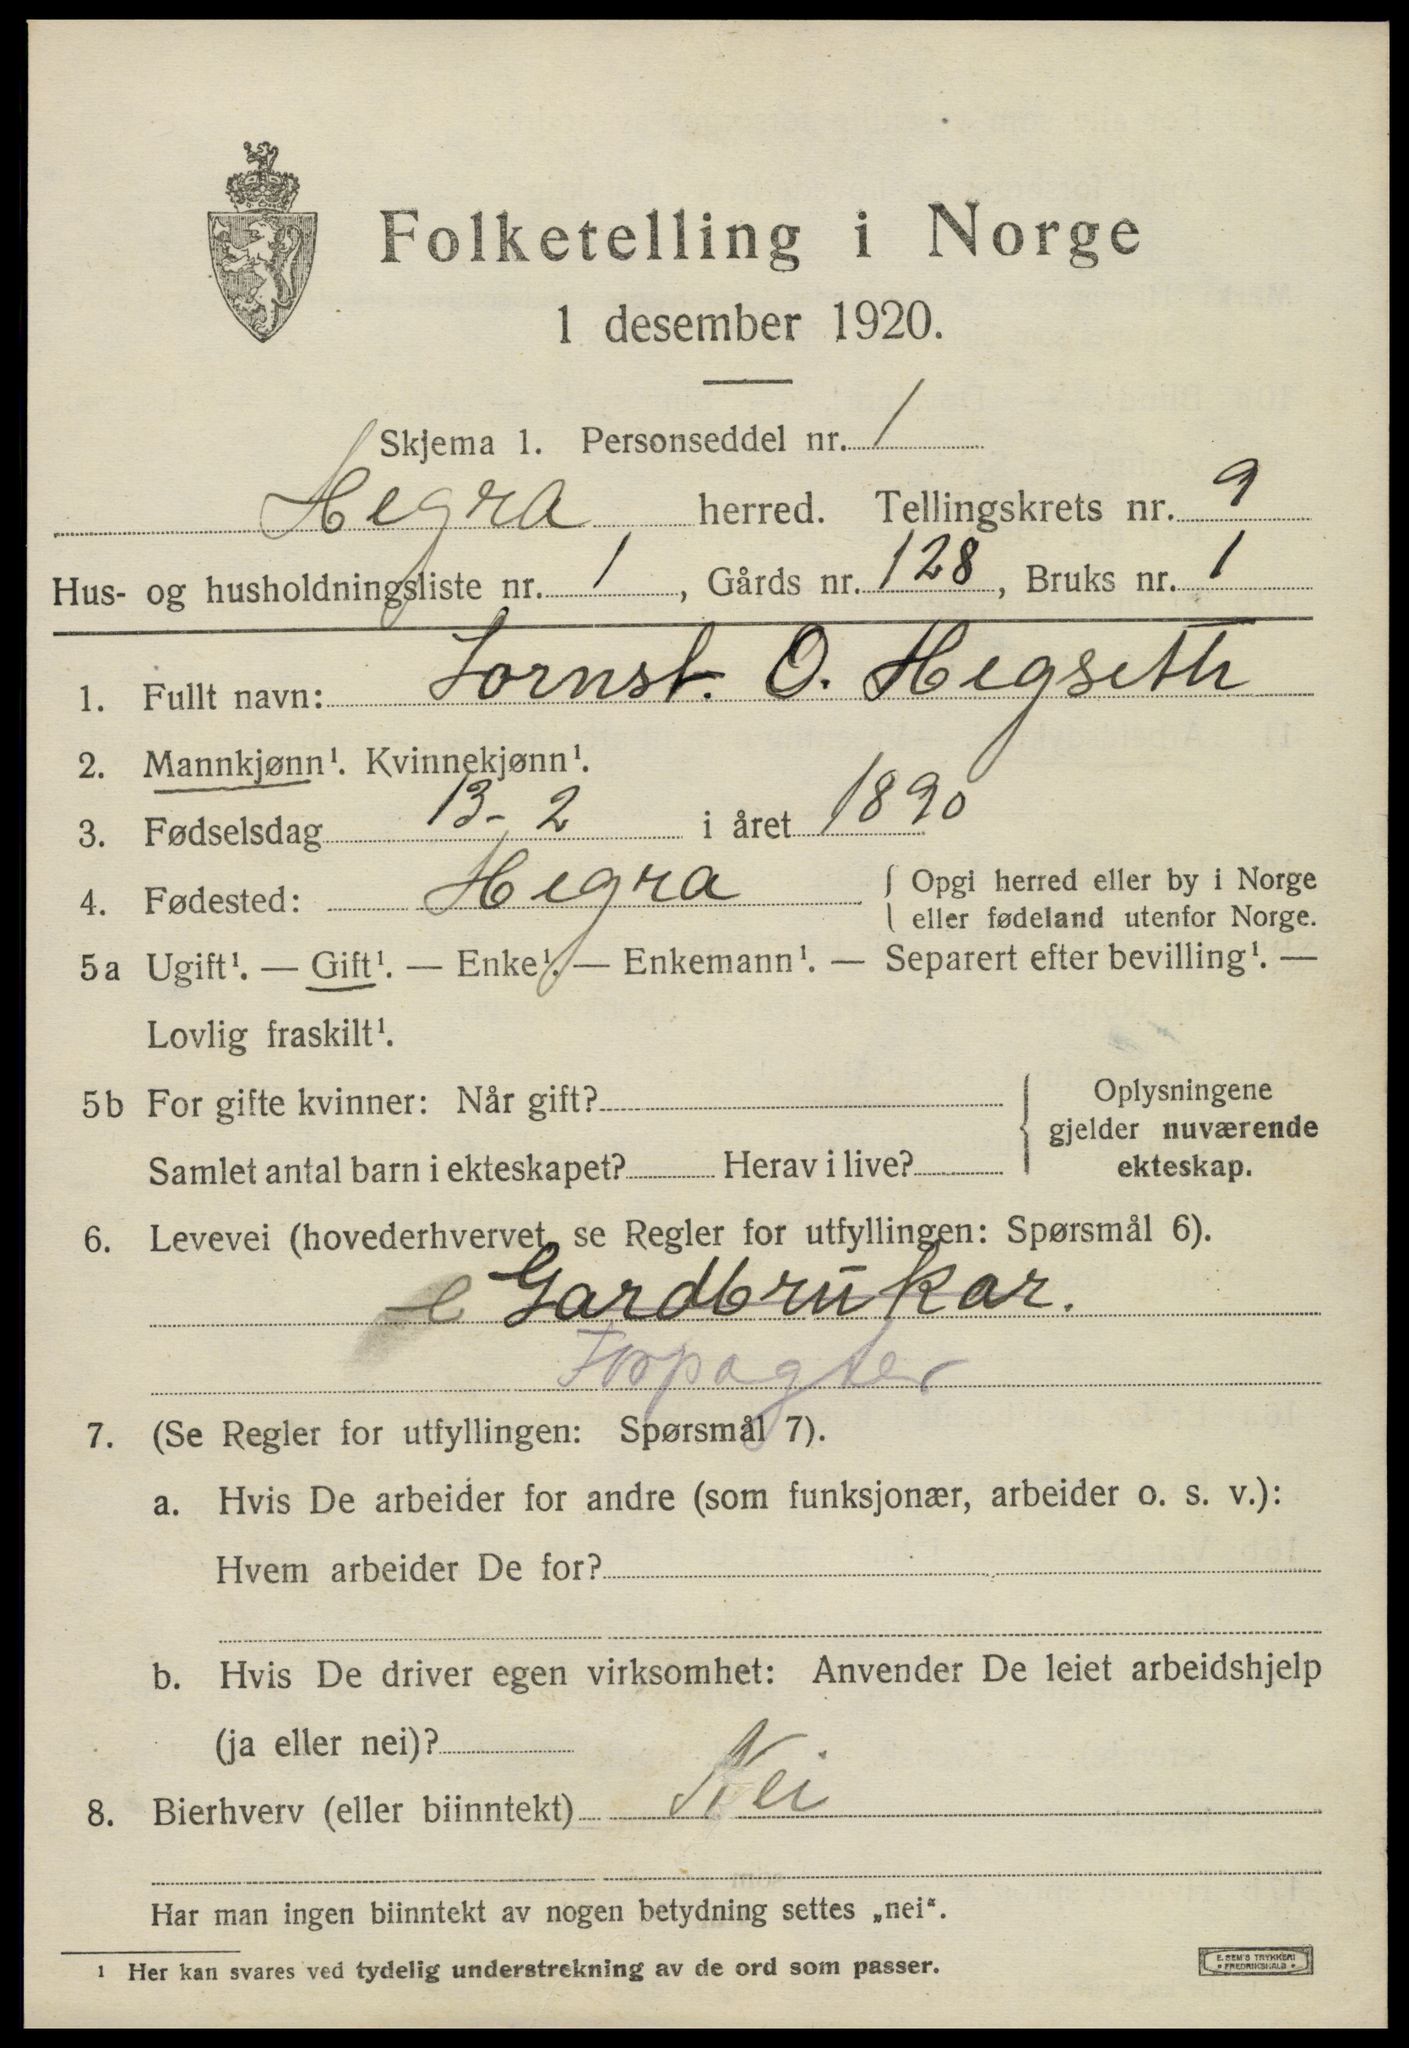 Folketelling i Norge
1 desember 1920.
Skjema 1. Personseddel nr. 1
Hegra herred. Tellingskrets nr. 9
Hus- og husholdningsliste nr. 1, Gårds nr. 128, Bruks nr. 1
1. Fullt navn: O. Hegseth
2. Mannkjønn¹. Kvinnekjønn¹.
3. Fødselsdag 13-2 i året 1890
4. Fødested: Hegra { Opgi herred eller by i Norge
eller fødeland utenfor Norge.
5a Ugift¹. — Gift¹. — Enke¹. — Enkemann¹. — Separert efter bevilling¹. —
Lovlig fraskilt¹.
5b For gifte kvinner: Når gift? { Oplysningene
gjelder nuværende
Samlet antal barn i ekteskapet? Herav i live? ekteskap.
6. Levevei (hovederhvervet, se Regler for utfyllingen: Spørsmål 6).
e Gardbrukar.
Forpagter
7. (Se Regler for utfyllingen: Spørsmål 7).
a. Hvis De arbeider for andre (som funksjonær, arbeider o. s. v.):
Hvem arbeider De for?
b. Hvis De driver egen virksomhet: Anvender De leiet arbeidshjelp
(ja eller nei)?
8. Bierhverv (eller biinntekt) Nei
Har man ingen biinntekt av nogen betydning settes „nei“.
¹ Her kan svares ved tydelig understrekning av de ord som passer.
E. SEM'S TRYKKERI
• FREDRIKSHALD •